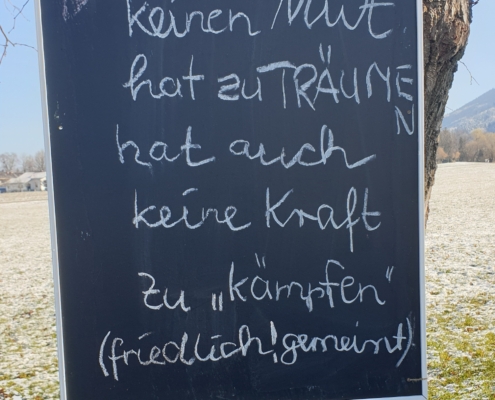 keinen Mut
hat zu TRÄUME
N
hat auch
keine Kraft
zu „kämpfen"
(friedlich! gemeint)